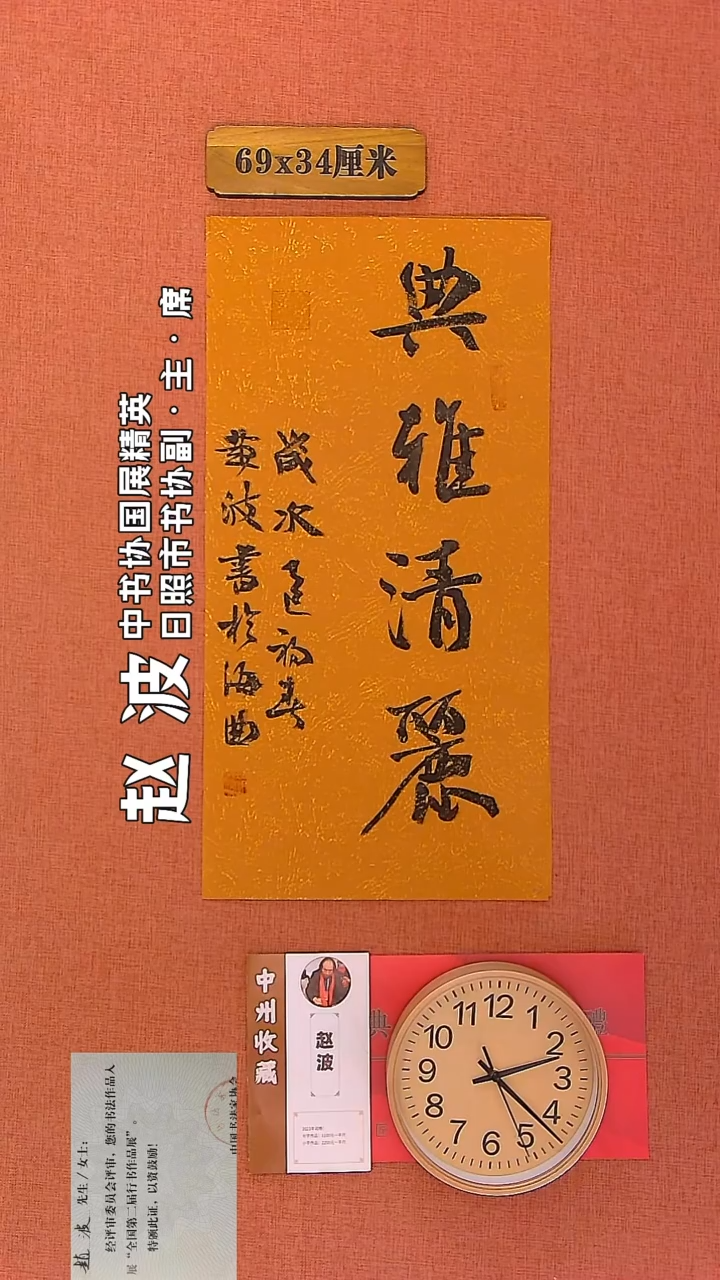 69x34厘米
典雅清麗
歲次
初春
黄波書於海曲
赵波
中书协国展精英
日照市书协副·主·席
赵波
12
1
2
3
4
5
6
7
8
9
10
11
典
禮
赵波 先生/女士：
经评审委员会评审，您的书法作品入
展“全国第二届行书作品展”。
特颁此证，以资鼓励！